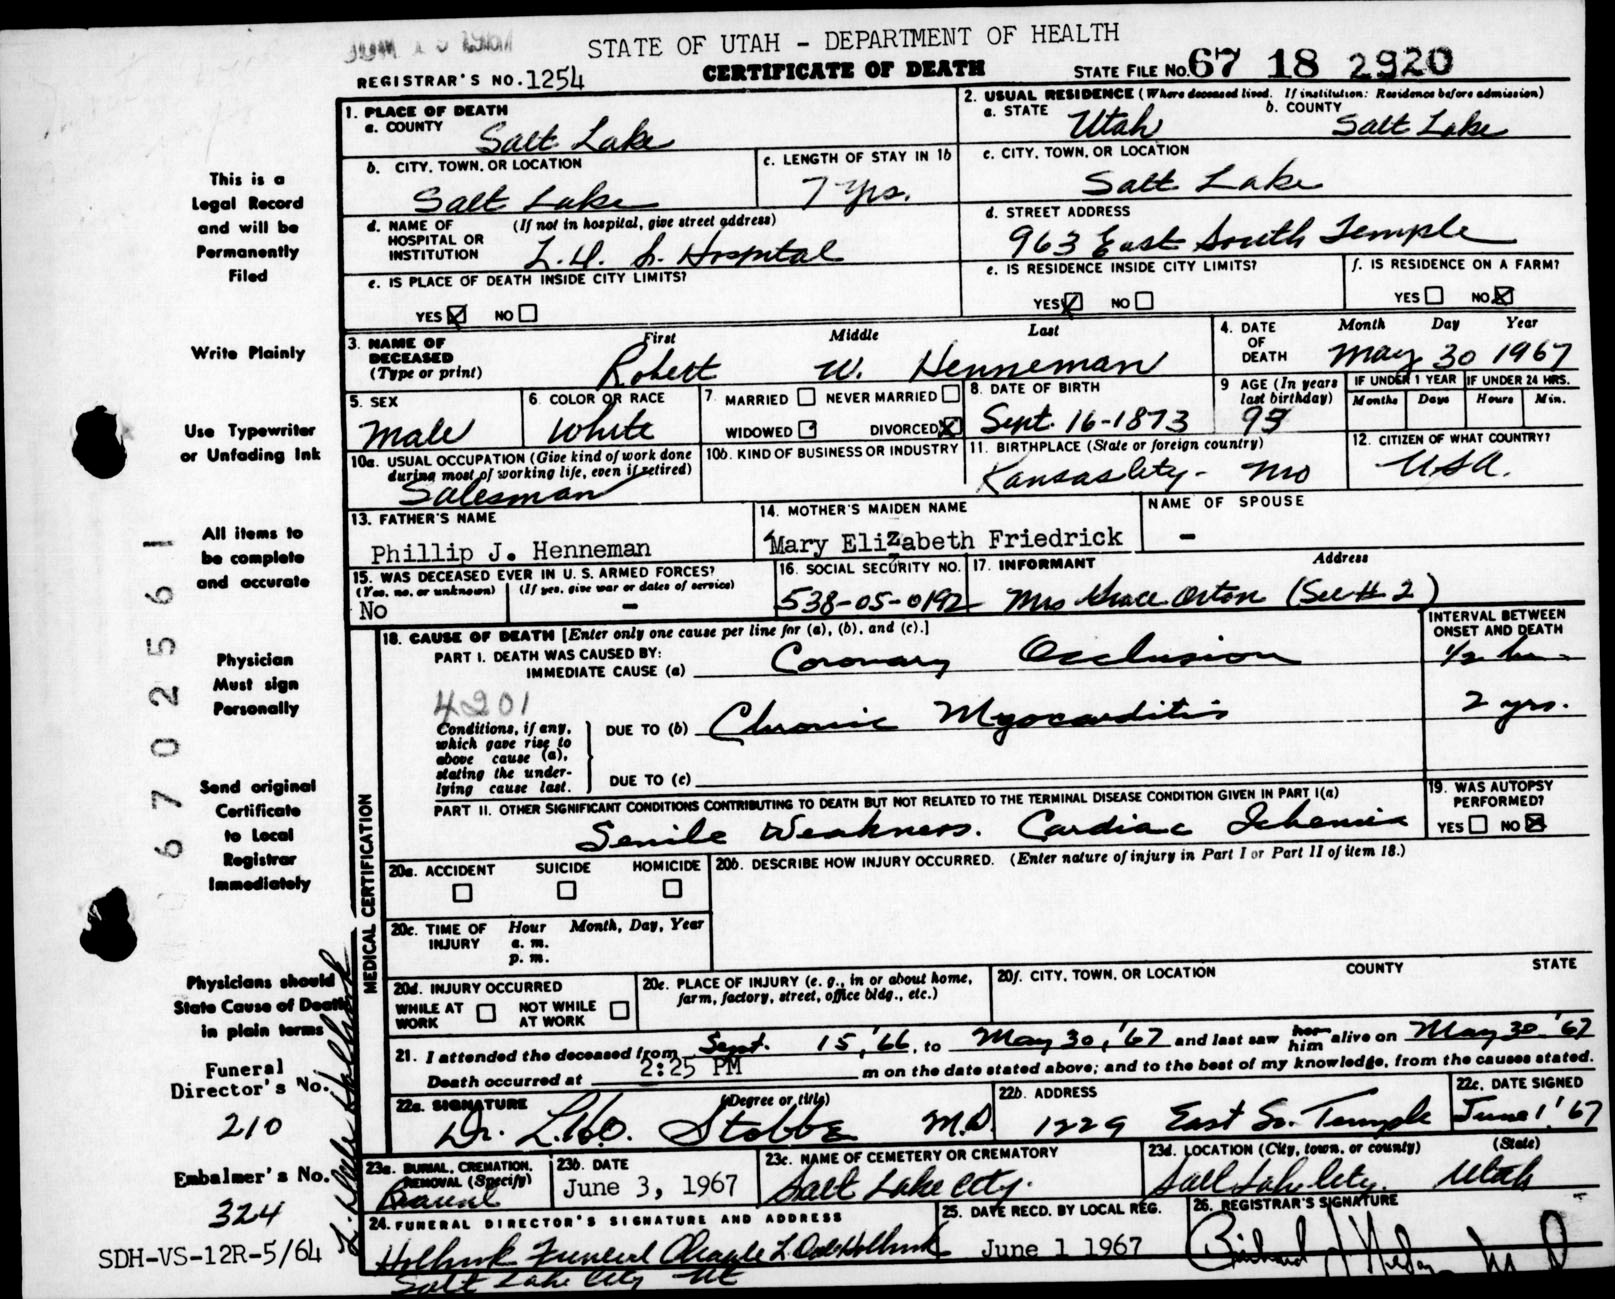 STATE OF UTAH - DEPARTMENT OF HEALTH
CERTIFICATE OF DEATH
REGISTRAR'S NO. 1254
STATE FILE NO. 67 18 2920
1. PLACE OF DEATH
a. COUNTY
Salt Lake
2. USUAL RESIDENCE (Where deceased lived. If institution: Residence before admission)
a. STATE Utah b. COUNTY Salt Lake
b. CITY, TOWN, OR LOCATION
Salt Lake
c. LENGTH OF STAY IN 1b
7 yrs.
c. CITY, TOWN, OR LOCATION
Salt Lake
d. NAME OF HOSPITAL OR INSTITUTION (If not in hospital, give street address)
L.D.S. Hospital
d. STREET ADDRESS
963 East South Temple
e. IS PLACE OF DEATH INSIDE CITY LIMITS?
YES NO
e. IS RESIDENCE INSIDE CITY LIMITS?
YES NO
f. IS RESIDENCE ON A FARM?
YES NO
3. NAME OF DECEASED (Type or print)
First Middle Last
Robert W. Henneman
4. DATE OF DEATH
Month Day Year
May 30 1967
5. SEX
Male
6. COLOR OR RACE
White
7. MARRIED NEVER MARRIED
WIDOWED DIVORCED
8. DATE OF BIRTH
Sept. 16-1873
9 AGE (In years last birthday)
IF UNDER 1 YEAR IF UNDER 24 HRS.
Months Days Hours Min.
10a. USUAL OCCUPATION (Give kind of work done during most of working life, even if retired)
Salesman
10b. KIND OF BUSINESS OR INDUSTRY
11. BIRTHPLACE (State or foreign country)
Kansas City - Mo
12. CITIZEN OF WHAT COUNTRY?
USA.
13. FATHER'S NAME
Phillip J. Henneman
14. MOTHER'S MAIDEN NAME
Mary Elizabeth Friedrick
NAME OF SPOUSE
-
15. WAS DECEASED EVER IN U. S. ARMED FORCES?
(Yes, no, or unknown) (If yes, give war or dates of service)
No -
16. SOCIAL SECURITY NO.
538-05-0192
17. INFORMANT Address
Mrs Grace Orton (See # 2)
MEDICAL CERTIFICATION
18. CAUSE OF DEATH [Enter only one cause per line for (a), (b), and (c).]
INTERVAL BETWEEN ONSET AND DEATH
PART I. DEATH WAS CAUSED BY:
IMMEDIATE CAUSE (a) Coronary Occlusion 1/2 hr
4201
Conditions, if any, which gave rise to above cause (a), stating the underlying cause last.
DUE TO (b) Chronic Myocarditis 2 yrs.
DUE TO (c)
PART II. OTHER SIGNIFICANT CONDITIONS CONTRIBUTING TO DEATH BUT NOT RELATED TO THE TERMINAL DISEASE CONDITION GIVEN IN PART I(a)
Senile Weakness. Cardiac
19. WAS AUTOPSY PERFORMED?
YES NO
20a. ACCIDENT SUICIDE HOMICIDE
20b. DESCRIBE HOW INJURY OCCURRED. (Enter nature of injury in Part I or Part II of item 18.)
20c. TIME OF INJURY Hour Month, Day, Year
a. m.
p. m.
20d. INJURY OCCURRED
WHILE AT WORK NOT WHILE AT WORK
20e. PLACE OF INJURY (e. g., in or about home, farm, factory, street, office bldg., etc.)
20f. CITY, TOWN, OR LOCATION COUNTY STATE
21. I attended the deceased from Sept. 15, '66, to May 30, '67 and last saw her him alive on May 30 '67
Death occurred at 2:25 PM m on the date stated above; and to the best of my knowledge, from the causes stated.
22a. SIGNATURE (Degree or title)
Dr. Stobbe M.D.
22b. ADDRESS
1229 East So. Temple
22c. DATE SIGNED
June 1 '67
23a. BURIAL, CREMATION, REMOVAL (Specify)
Burial
23b. DATE
June 3, 1967
23c. NAME OF CEMETERY OR CREMATORY
Salt Lake City.
23d. LOCATION (City, town, or county) (State)
Salt Lake City. Utah
24. FUNERAL DIRECTOR'S SIGNATURE AND ADDRESS
Holbrook Funeral Chapel L. Dale Holbrook
Salt Lake City Ut
25. DATE RECD. BY LOCAL REG.
June 1 1967
26. REGISTRAR'S SIGNATURE
This is a
Legal Record
and will be
Permanently
Filed
Write Plainly
Use Typewriter
or Unfading Ink
All items to
be complete
and accurate
Physician
Must sign
Personally
Send original
Certificate
to Local
Registrar
Immediately
Physicians should
State Cause of Death
in plain terms
Funeral
Director's No.
210
Embalmer's No.
324
SDH-VS-12R-5/64
L. Dale Holbrook
6702561